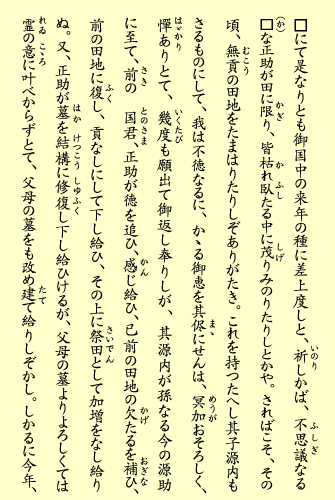 □にて是なりとも御国中の来年の種に差上度しと、祈しかば、不思議なる
□な正助が田に限り、皆枯れ臥たる中に茂りみのりたりしとかや。さればこそ、その
頃、無貢の田地をたまはりたりしぞありがたき。これを持つたへし其子源内も
さるものにして、我は不徳なるに、かゝる御恵を其侭にせんは、冥加おそろしく、
憚ありとて、幾度も願出て御返し奉りしが、其源内が孫なる今の源助
に至て、前の　国君、正助が徳を追ひ、感じ給ひ、已前の田地の欠たるを補ひ、
前の田地に復し、貢なしにして下し給ひ、その上に祭田として加増をなし給り
ぬ。又、正助が墓を結構に修復し下し給ひけるが、父母の墓よりよろしくては
霊の意に叶べからずとて、父母の墓をも改め建て給りしぞかし。しかるに今年、